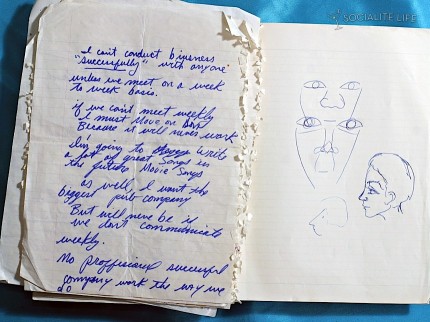 SOCIALITE LIFE
I can't conduct bisness
"successfully" with anyone
unless we meet on a week
to week basis.
if we can't meet weekly
I must Move on
Because it will never work
I'm going to write
a lot of great songs in
the future Movie Songs
as well, I want the
biggest pub company
But will never be if
we don't communicate
weekly.
No proffesional successful
company work the way we
do